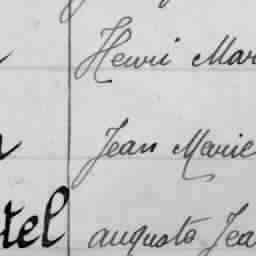 Henri Mar
Jean Marie
tel auguste Jea